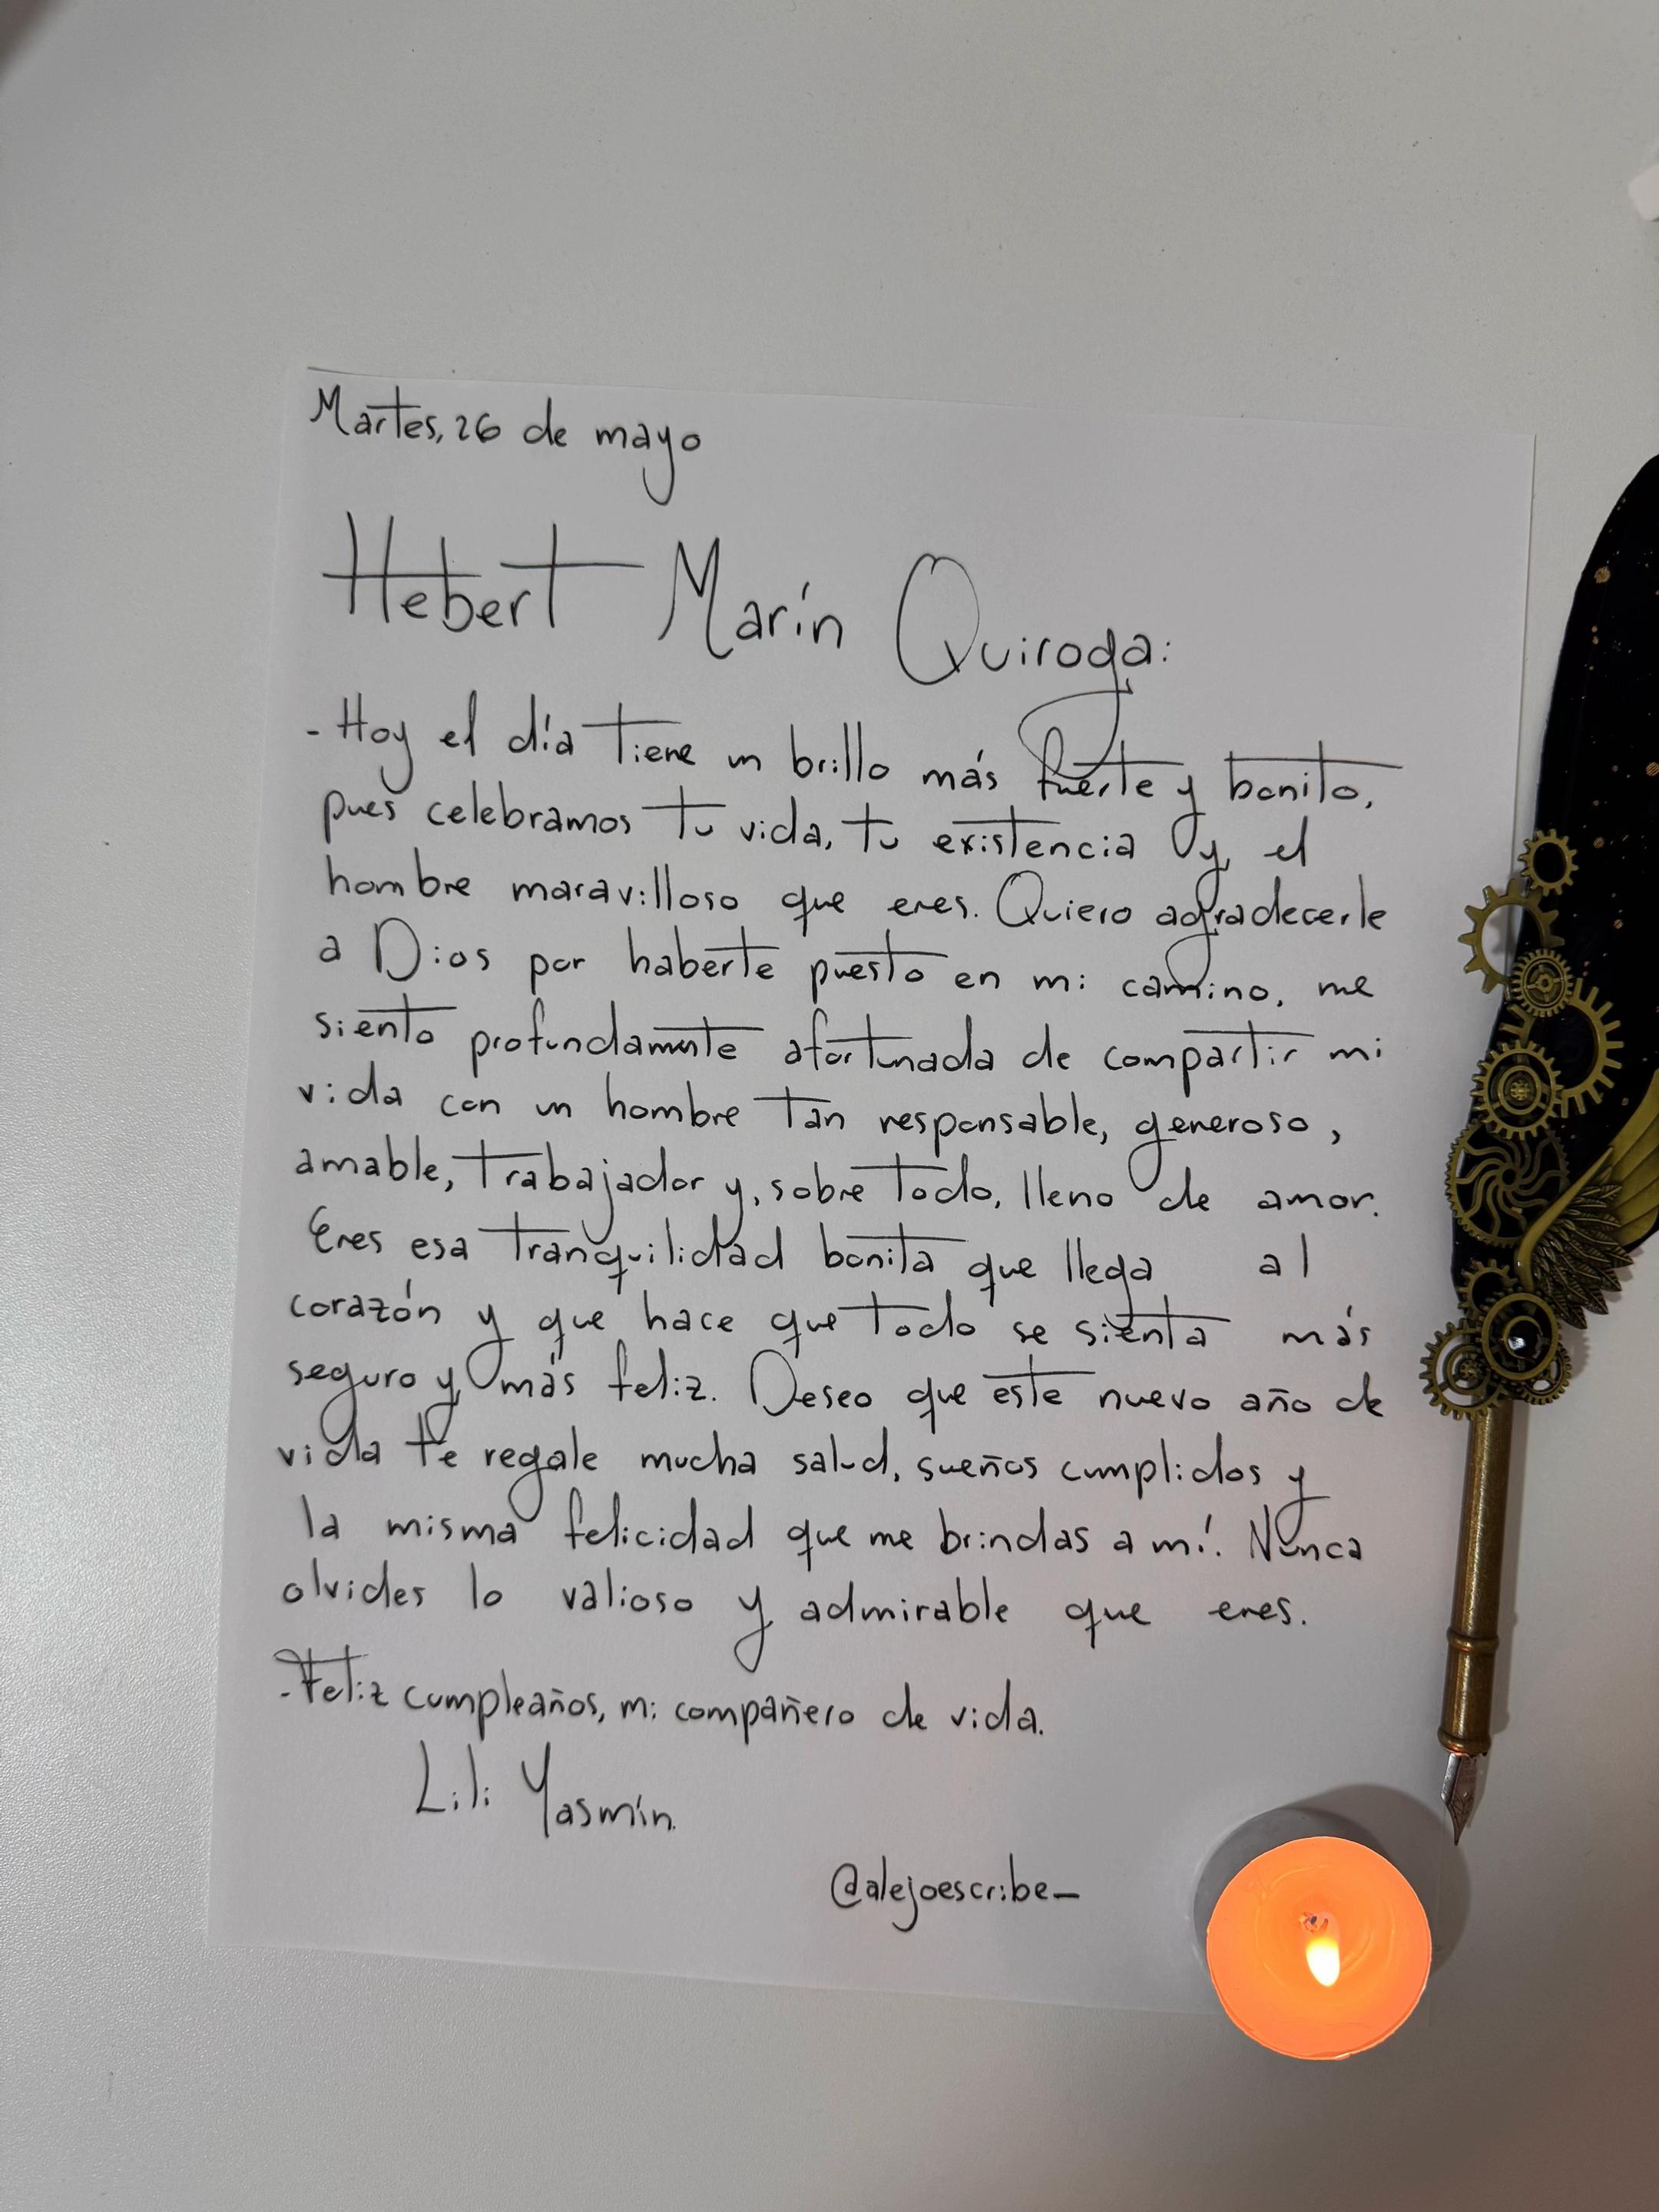 Martes, 26 de mayo
Hebert Marín Quiroga:
- Hoy el día tiene un brillo más fuerte y bonito,
pues celebramos tu vida, tu existencia y el
hombre maravilloso que eres. Quiero agradecerle
a Dios por haberte puesto en mi camino, me
siento profundamente afortunada de compartir mi
vida con un hombre tan responsable, generoso,
amable, trabajador y, sobre todo, lleno de amor.
Eres esa tranquilidad bonita que llega al
corazón y que hace que todo se sienta más
seguro y más feliz. Deseo que este nuevo año de
vida te regale mucha salud, sueños cumplidos y
la misma felicidad que me brindas a mí. Nunca
olvides lo valioso y admirable que eres.
- Feliz cumpleaños, mi compañero de vida.
Lili Yasmín.
@alejoescribe_